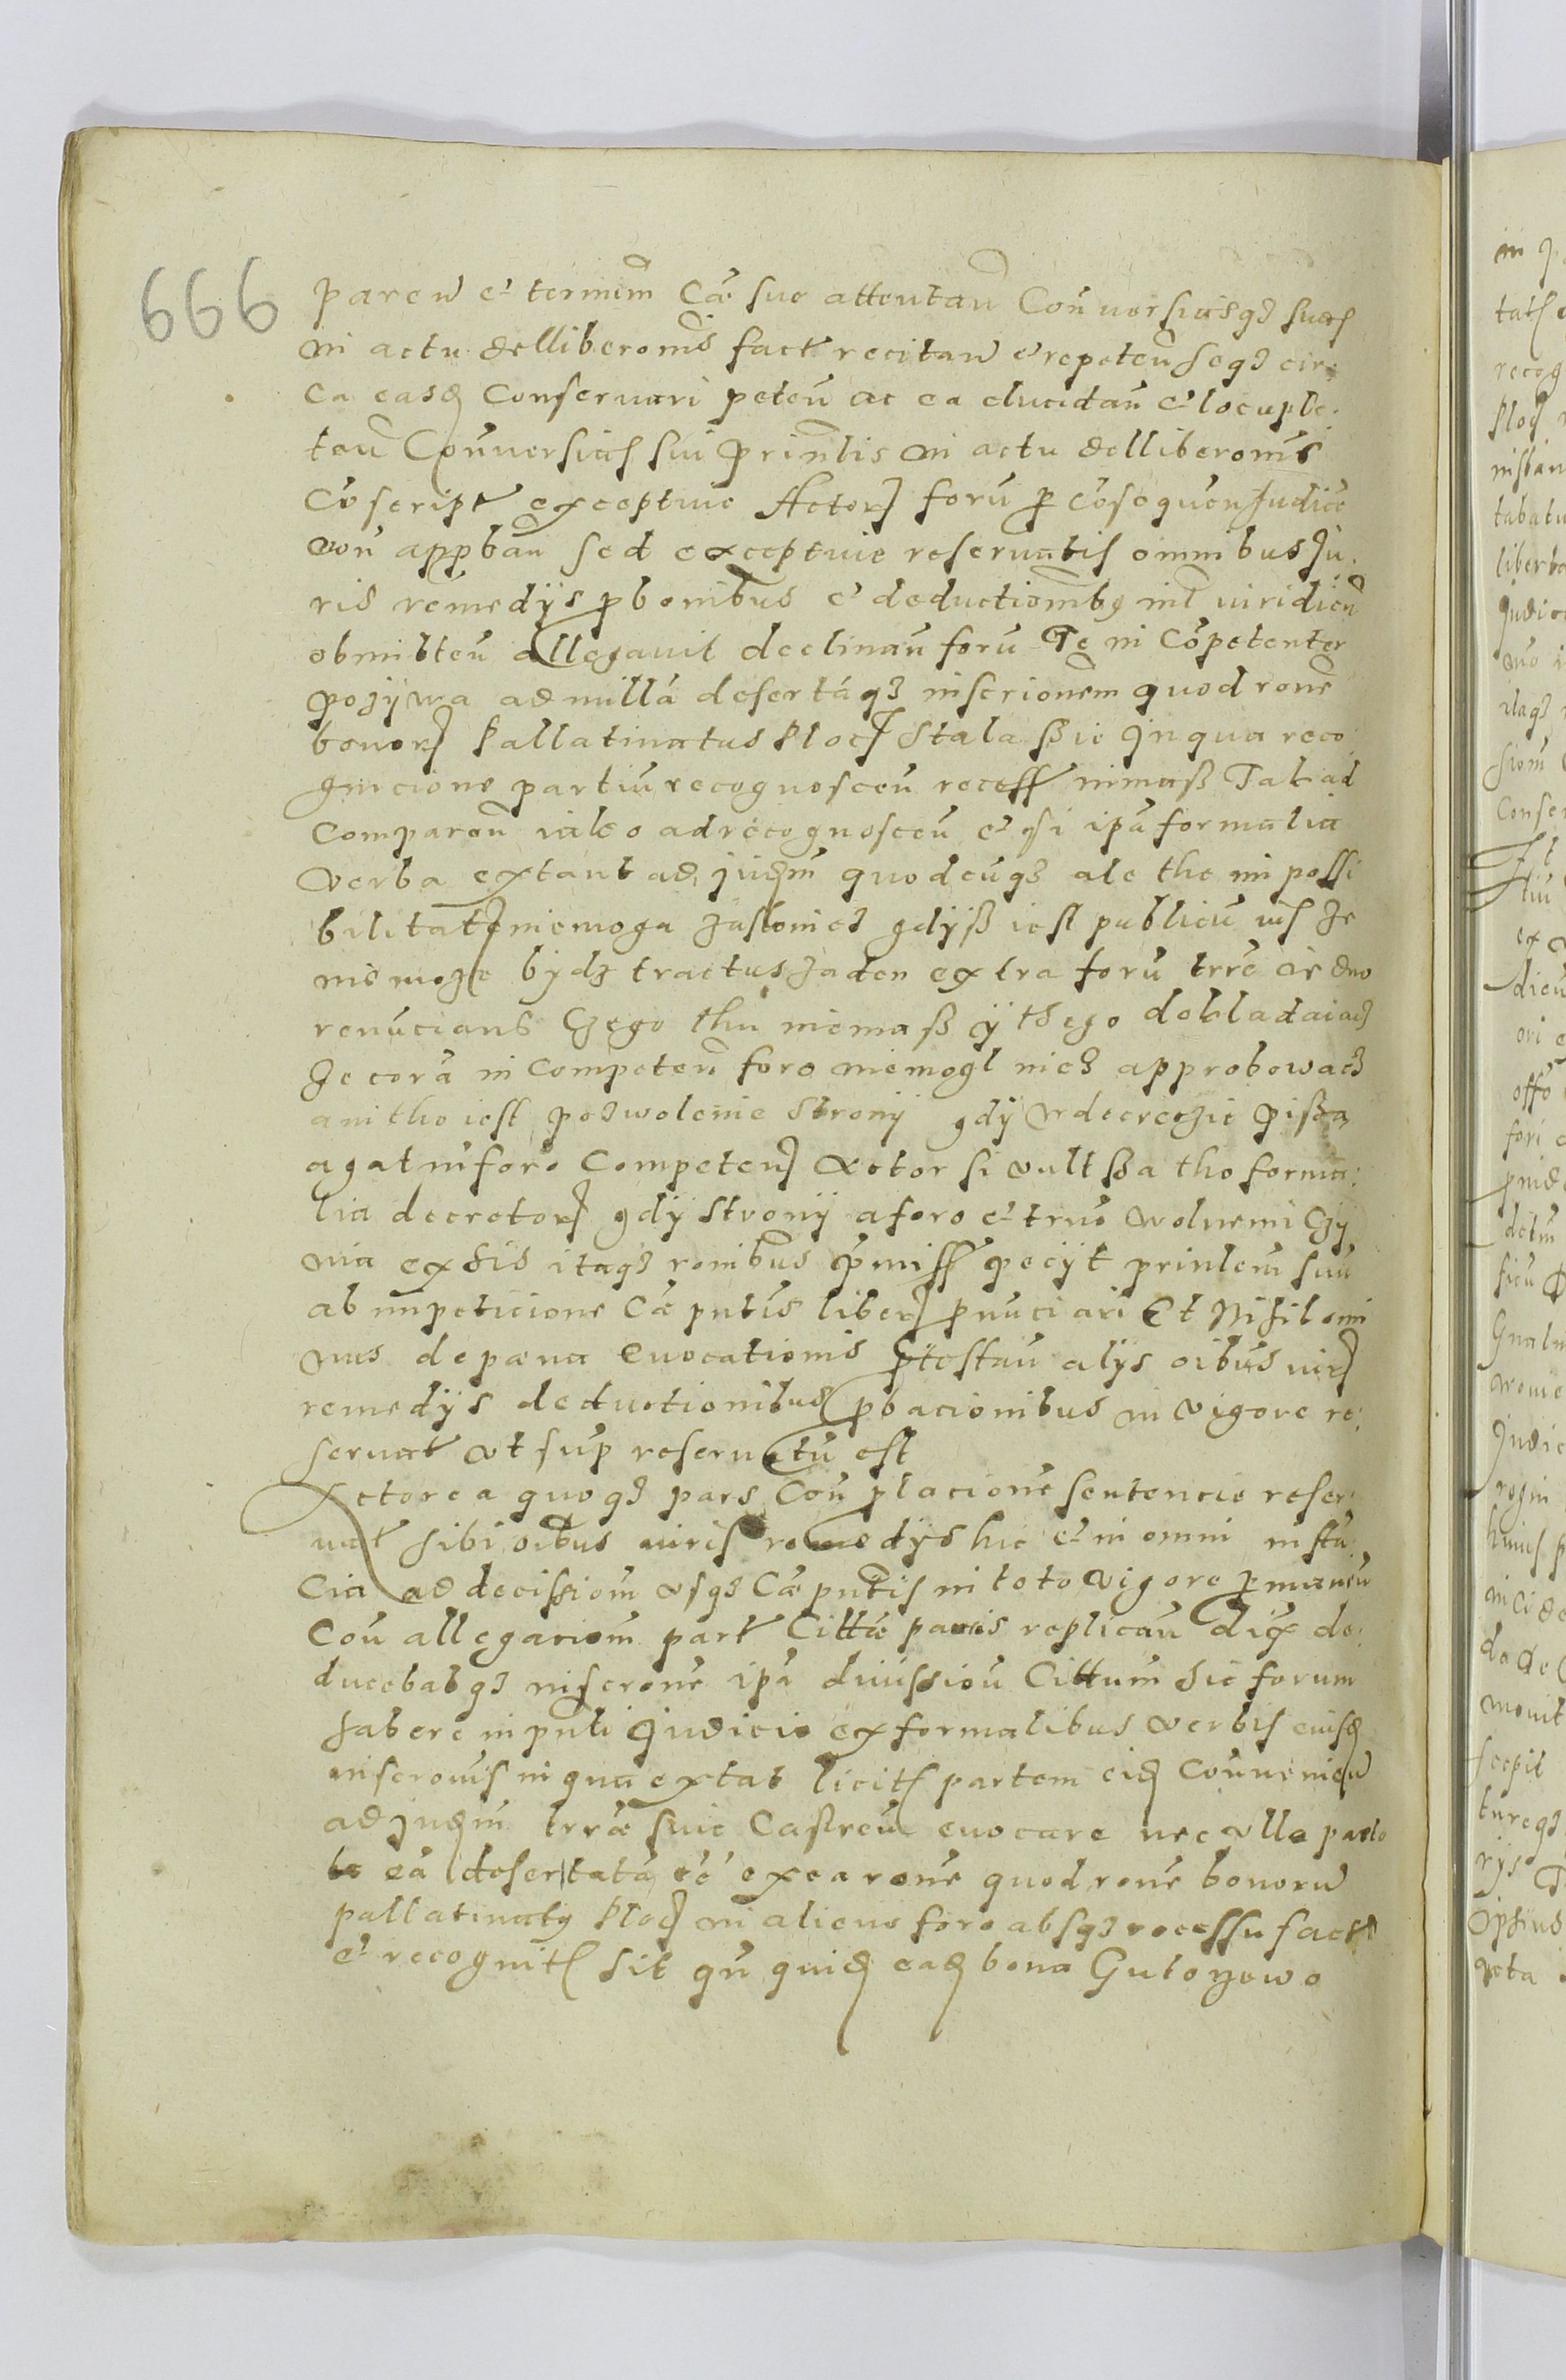 666
paren et termin Cae sue attentan Conuersiasq3 suas
in actu delliberonis fact recitan et repeten seq3 cir
ca easd Conseruari peten ac ea elucidan et locuple
tan Conuersias sui principlis in actu delliberonis
Coscript exceptive Actor foru p cosequen Judice
non appban sed exceptive reservatis omnibus Ju
ris remedys pbonibus et deductiombg inl
obmitten allegavit declinan foru Te in Copetenter
pozÿwa ad nullá desertáq3 inscrionem quod rone
bonor Pallatinatus Ploc Stala ssie In qua reco
gnicione partiu recognoscen recess nimass Tak ad
comparen iako ad recognoscen et si ipa formalia
verba extant ad judm quodcuq3 ale the impossi
bilitat niemoga zasłonicz gdÿss iest publicu ius Ze
niemoze bÿdz tractus zaden extra foru trre
renucians Czego thu niemass ÿ thego dokladaiacz
Ze cora in Competen foro niemogl nicz approbowacz
ani tho iest pozwolenie Stronÿ gdÿ wdecreczie pissa
agat in foro Competen Actor si vult ssa tho forma
lia decretor gdÿ Stronÿ a foro et wolnemi Czÿ
nia ex his itaq3 ronibus pmiss pecÿt prinlem suu
ab impeticione Cae pntis liber pnuciari Et Nihilomi
nus de paena evocationis ptestan alys oibus iur
remedÿs deductionibus pbacionibus in vigore re
servat vt sup reservatu est
Actorea quoq3 pars Con placione sentencie reser
vat sibi oibus iuris remedÿs hic et in omni insta
cia ad decission vsq3 Cae pntis in toto vigore pmanen
Con allegaciom part Cittae parvis replican dix de
ducebatq3 inscrone ipa divission Cittum hic forum
habere in pnti Judicio ex formalibus verbis eiusd
inscronis in qua extat licit partem eid Convenien
ad judm trrae suae Castren evocare nec vllo pacto
ea desertatá ee ex ea rone quod rone bonoru
pallatinatg Ploc in alieno foro absq3 recessu fact
et recognit sit qn quid ead bona Gulozewo